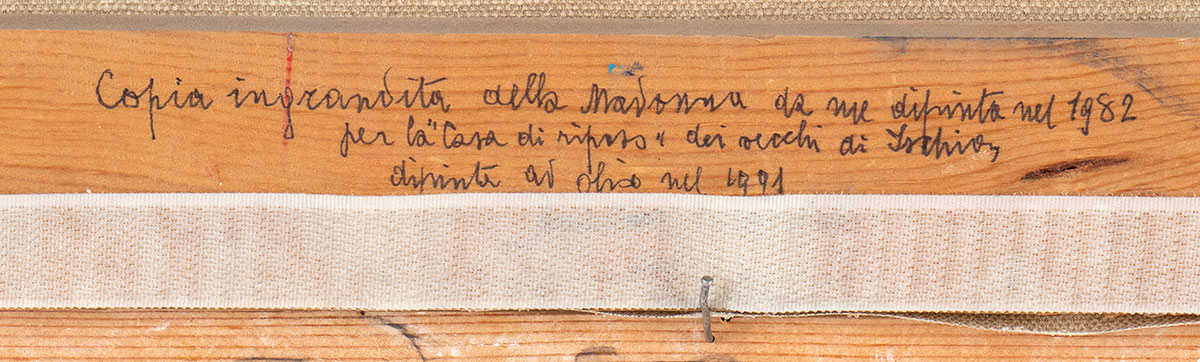 Copia ingrandita della Madonna da me dipinta nel 1982
per la "Casa di riposo" dei vecchi di Ischia,
dipinta ad olio nel 1991